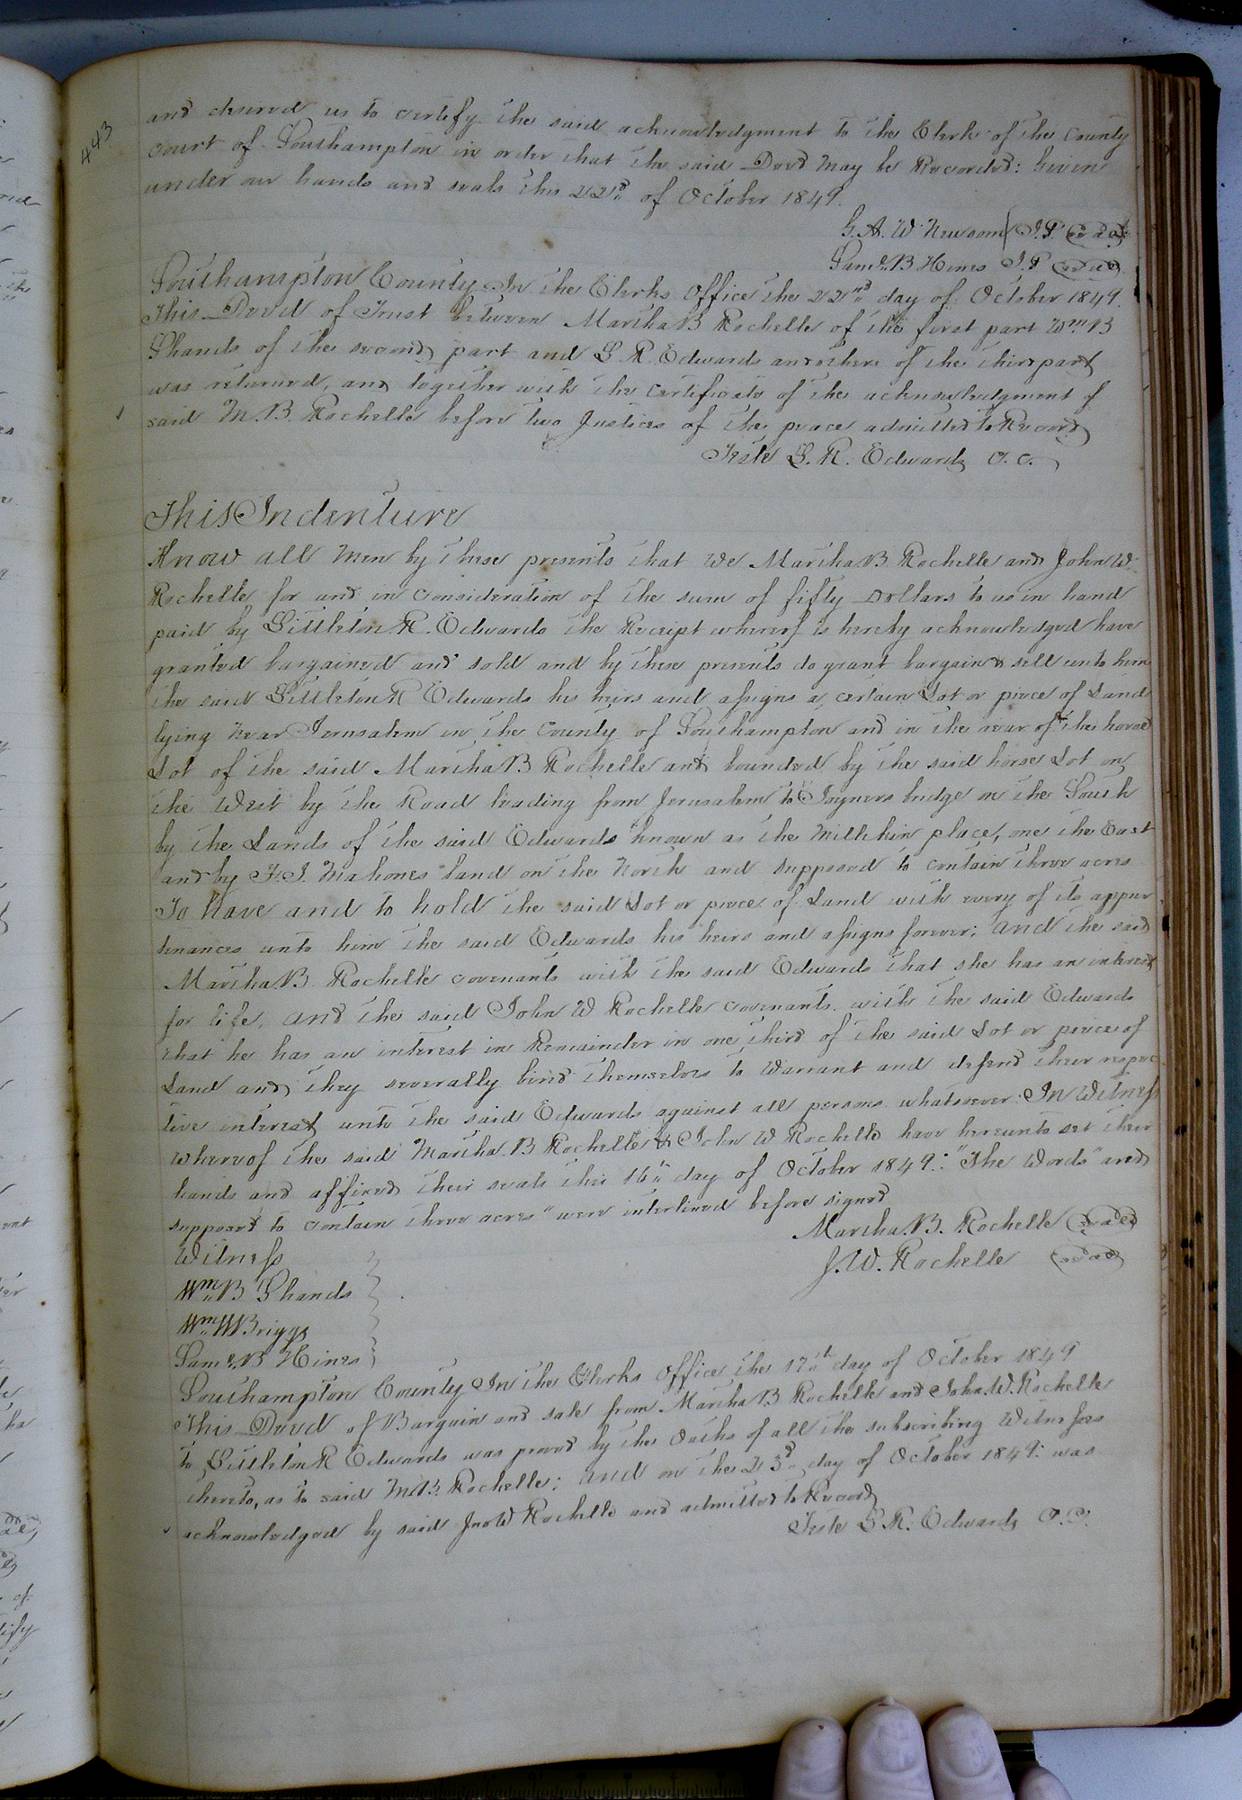 443
and desired us to certify the said acknowledgment to the Clerk of the County
Court of Southampton in order that the said Deed may be Recorded: Given
under our hands and seals this 22nd of October 1849.
G. A. W. Newsom J.P. seal
Saml. B Hines J.P seal
Southampton County In the Clerks Office the 22nd day of October 1849.
This Deed of Trust between Martha B Rochelle of the first part Wm B
Shands of the second part and L R. Edwards and others of the third part
was returned, and together with the Certificate of the acknowledgment of
said M. B Rochelle before two Justices of the peace admitted to Record
Teste L. R. Edwards C. C.
This Indenture
Know all Men by these presents that We Martha B Rochelle and John W.
Rochelle for and in Consideration of the sum of fifty Dollars to us in hand
paid by Littleton R. Edwards the Receipt whereof is hereby acknowledged have
granted bargained and sold and by these presents do grant bargain & sell unto him
the said Littleton R Edwards his heirs and assigns a certain Lot or piece of Land
lying near Jerusalem in the County of Southampton and in the rear of the horse
Lot of the said Martha B Rochelle and bounded by the said horse Lot on
the West by the Road leading from Jerusalem to Joyners bridge on the South
by the Lands of the said Edwards known as the Millikin place, one the East
and by F. J. Mahones land on the North and supposed to contain three acres
To have and to hold the said Lot or piece of Land with every of its appur
tenances unto him the said Edwards his heirs and assigns forever; and the said
Martha B Rochelle covenants with the said Edwards that she has an interest
for life, and the said John W Rochelle covenants with the said Edwards
that he has an interest in Remainder in one third of the said Lot or peice of
Land and they severally bind themselves to Warrant and defend their respec
tive interest unto the said Edwards against all persons whatsoever. In Witness
whereof the said Martha B Rochelle & John W Rochelle have hereunto set their
hands and affixed their seals this 16th day of October 1849: "The Words "and
supposed to contain three acres" were interlined before signed
Martha B. Rochelle seal
J. W. Rochelle seal
Witness
Wm B Shands
Wm W Briggs
Saml. B Hines
Southampton County In the Clerks Office the 17th day of October 1849
This Deed of Bargain and sale from Martha B Rochelle and John W. Rochelle
to Littleton R Edwards was proved by the Oaths of all the subscribing Witnesses
thereto, as to said M. B. Rochelle; and on the 23d day of October 1849: was
acknowledged by said Jno W Rochelle and admitted to Record
Teste L R. Edwards C. C.